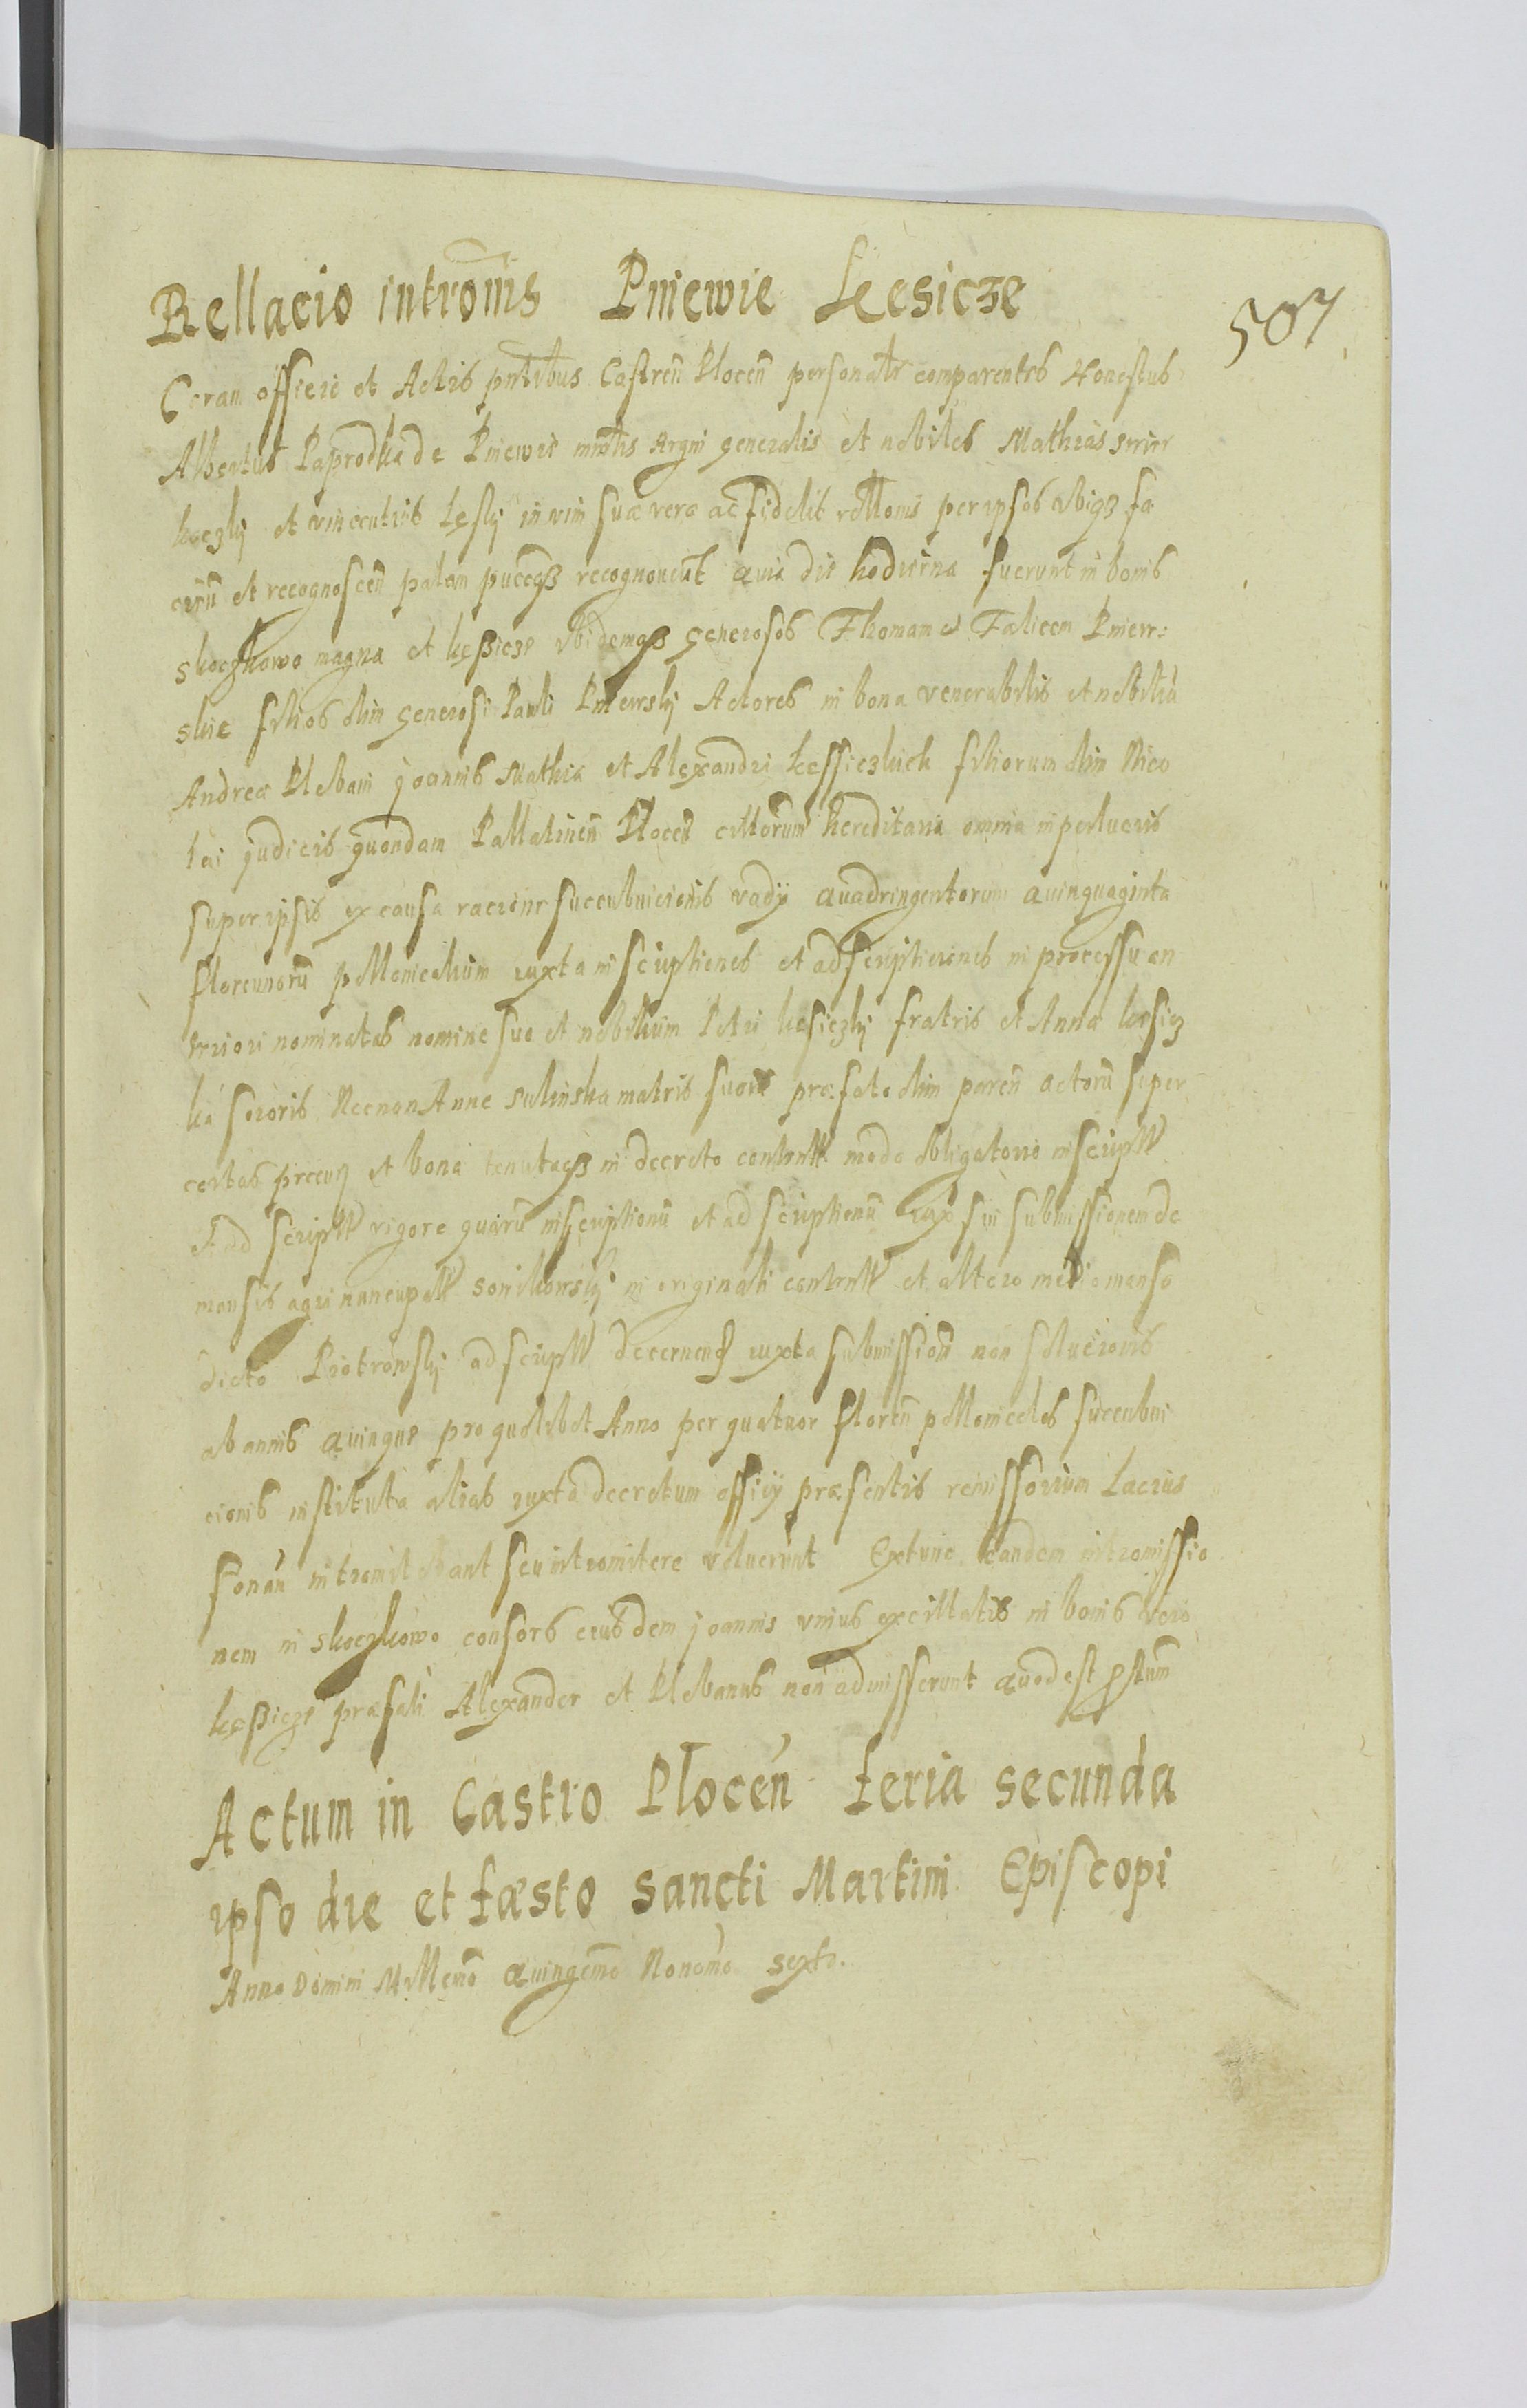 Rellacio intromis Pniewie Łęsicze
507
Coram officio et Actis pntibus Castren Plocen personalr comparentes Honestus
Albertus Paprodka de Pniewie mnstlis Regni generalis et nobiles Mathias
et vincentius Lesky in vim suæ veræ ac fidelis rellonis per ipsos ubiqz fa
cien et recognoscen palam puceqz recognoverut quia die hodierna fuerunt in bonis
skoczkowo magna et kęßicze ibidemqz generosos Thomam et Falicem Pniew:
skie filios olim generosi Pauli Pniewsky Actores in bona venerabilis et nobiliu
Andreæ Plebani joannis Mathiæ et Alexandri Łęssiczkich filiorum olim Nico
lai judicis quondam Pallatinen Plocen cittorum hereditaria omnia in perlucris
super ipsis ex causa racione succubuicionis vadij quadringentorum quinquaginta
florenorum pollonicalium iuxta inscriptiones et adscripticiones in processu an
teriori nominatas nomine suo et nobilium Petri kęsiczky fratris et Anna kęsicz
ka sororis Necnon Anne sulinska matris suorum præfato olim paren actoru super
certas pecun et bona tenutaqz in decreto content modo obligatorio inscript
et ad script vigore quarum inscriptionu et ad scriptionu iux sui submissionem de
mansis agri nuncupatt in originali content et altero medio manso
dicto Piotrowsky ad script decernend iuxta submissiom non solucionis
ab annis quinque pro quolibet Anno per quatuor floren pollonicales succubui
cionis instituta alias iuxta decretum officij præsentis remissorium Lacius
sonan intromittebant seu intromitere voluerunt Extunc eandem intromissio
nem in skoczkowo consors eiusdem joannis unius ex cittatis in bonis vero
kęßicze præfati Alexander et Plebanus non admisserunt quod est prstum
Actum in Castro Plocen feria secunda
ipso die et fæsto sancti Martini Episcopi
Anno Domini Millemo quingemo Nonomo sexto.